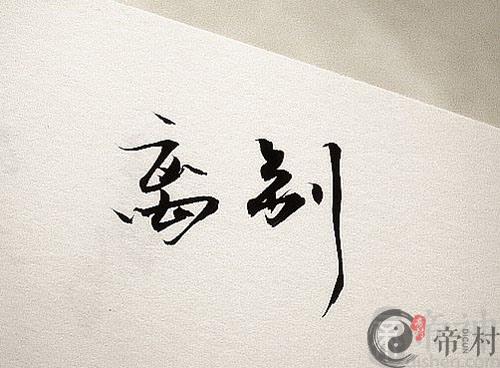 离别
帝村
DICUN